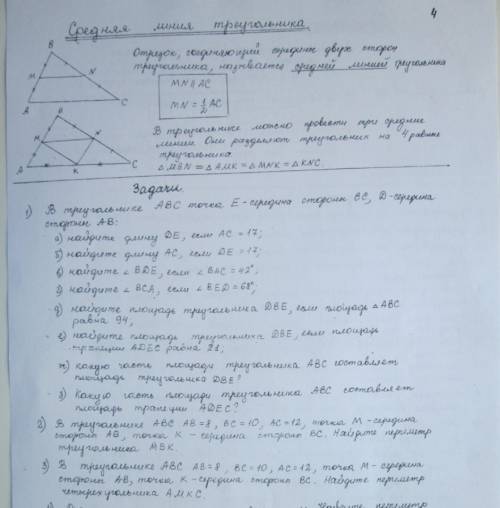 4
Средняя линия треугольника.
B
M
N
A
C
Отрезок, соединяющий середины двух сторон
треугольника, называется средней линией треугольника
MN ∥ AC
MN = 1/2 AC
B
M
N
A
K
C
В треугольнике можно провести три средние
линии. Они разделяют треугольник на 4 равные
треугольника.
△MBN = △AMK = △MNK = △KNC.
Задачи.
1) В треугольнике ABC точка E - середина стороны BC, D - середина
стороны AB:
а) найдите длину DE, если AC = 17;
б) найдите длину AC, если DE = 17;
в) найдите ∠BDE, если ∠BAC = 42°;
г) найдите ∠BCA, если ∠BED = 68°;
д) найдите площадь треугольника DBE, если площадь △ABC
равна 94;
е) найдите площадь треугольника DBE, если площадь
трапеции ADEC равна 21;
ж) какую часть площади треугольника ABC составляет
площадь треугольника DBE?
з) Какую часть площади треугольника ABC составляет
площадь трапеции ADEC?
2) В треугольнике ABC AB = 8, BC = 10, AC = 12, точка M - середина
стороны AB, точка K - середина стороны BC. Найдите периметр
треугольника MBK.
3) В треугольнике ABC AB = 8, BC = 10, AC = 12, точка M - середина
стороны AB, точка K - середина стороны BC. Найдите периметр
четырехугольника AMKC.
периметр